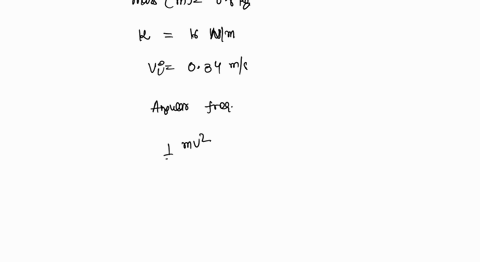 mass (m) = 0.8 kg
k = k N/m
Vi = 0.34 m/s
Angular freq.
1 mv²